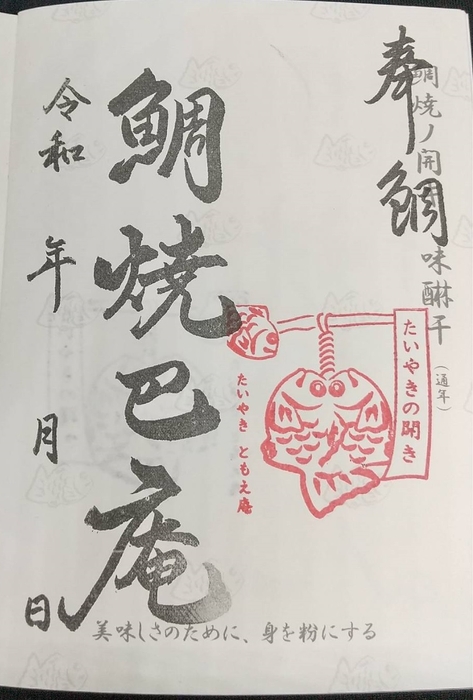 奉鯛
鯛焼ノ開キ 味醂干
(通年)
たいやきの開き
たいやき ともえ庵
鯛焼巴庵
令和 年 月 日
美味しさのために、身を粉にする